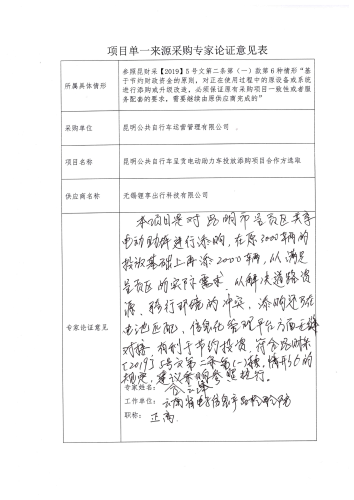 项目单一来源采购专家论证意见表
所属具体情形
参照昆财采【2019】5号文第二条第（一）款第6种情形“基
于节约财政资金的原则，对正在使用过程中的原设备或系统
进行添购或升级改造，必须保证原有采购项目一致性或者服
务配套的要求，需要继续由原供应商完成的”
采购单位
昆明公共自行车运营管理有限公司
项目名称
昆明公共自行车呈贡电动助力车投放添购项目合作方选取
供应商名称
无锡锂享出行科技有限公司
专家论证意见
本项目是对昆明市呈贡区共享
电动助力车进行添购，在原3000车辆的
投放基础上再添2000车辆，以满足
呈贡区的实际需求，以解决道路资
源，骑行环境的冲突，添购还可在
电池匹配，信息化管理平台方面无缝
对接，有利于节约投资，符合昆财采
[2019]5号文第二条第(一)款，情形6的
规定，建议参照执行。
专家姓名：
工作单位：云南省电子信息产品检验院
职称：正高